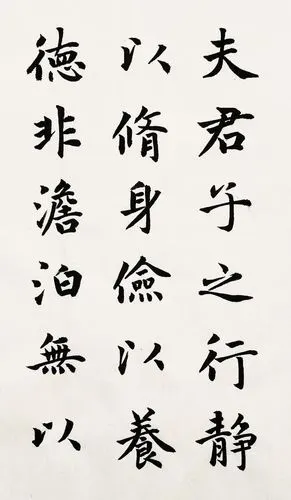 夫君子之行静
以脩身儉以養
徳非澹泊無以